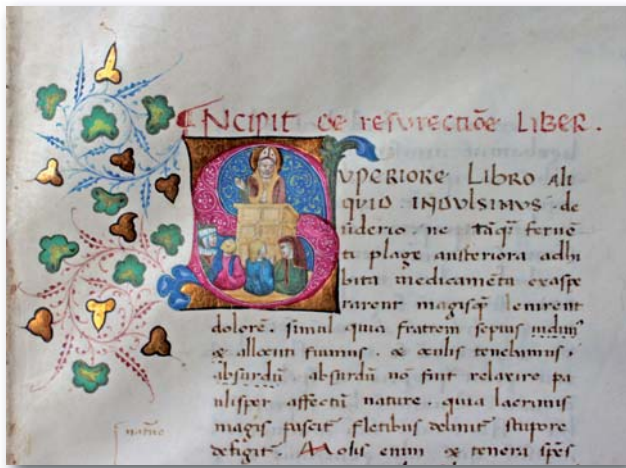 INCIPIT de resurectiõe LIBER.
SUPERIORE LIBRO ALI
QUID INDULSIMUS de
siderio ne tãq̃ ferue
ti plage austeriora adhi
bita medicamẽta exaspe
rarent magisq̃ lenirent
dolorẽ. simul quia fratrem sepius uidimꝰ
& allocuti fuimus. & oculis tenebamus.
absurdũ absurdũ nõ fuit relaxare pa
ulisper affectũ nature. quia lacrimis
magis pascit̃ fletibus delinit̃ stupore
defigit̃. Molis enim & tenera spẽs
natur̃e